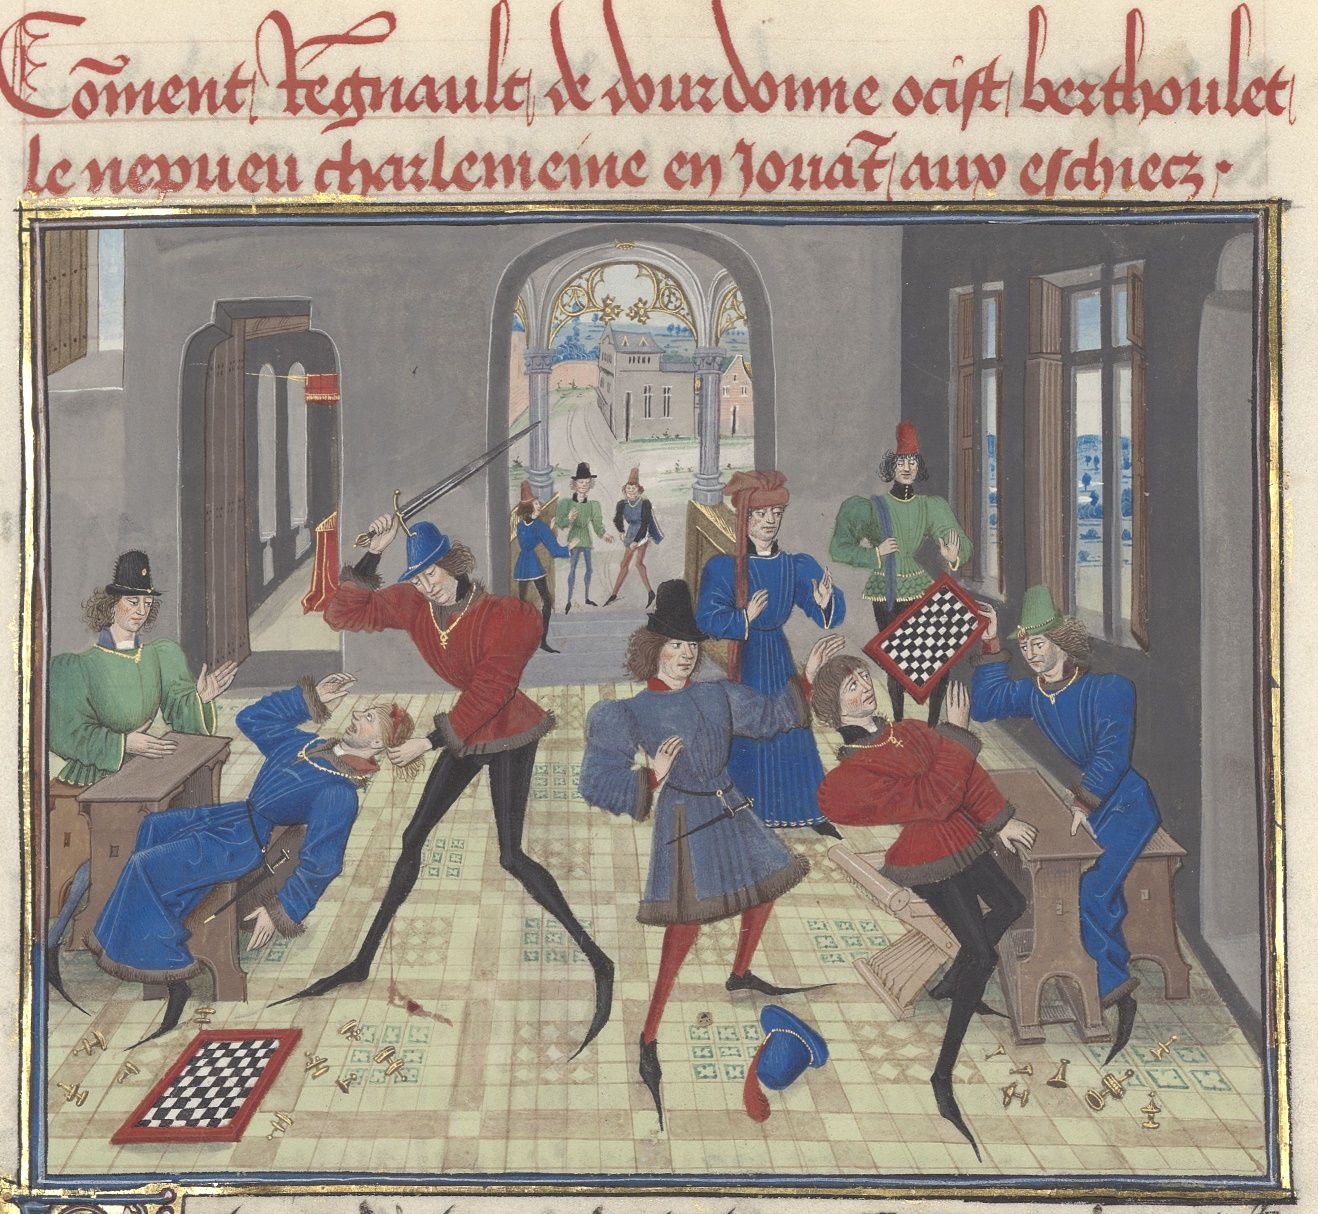 Cōment Regnault de dourdonne ocist berthoulet
le nepueu charlemeine en Jouāt aux eschiecz.